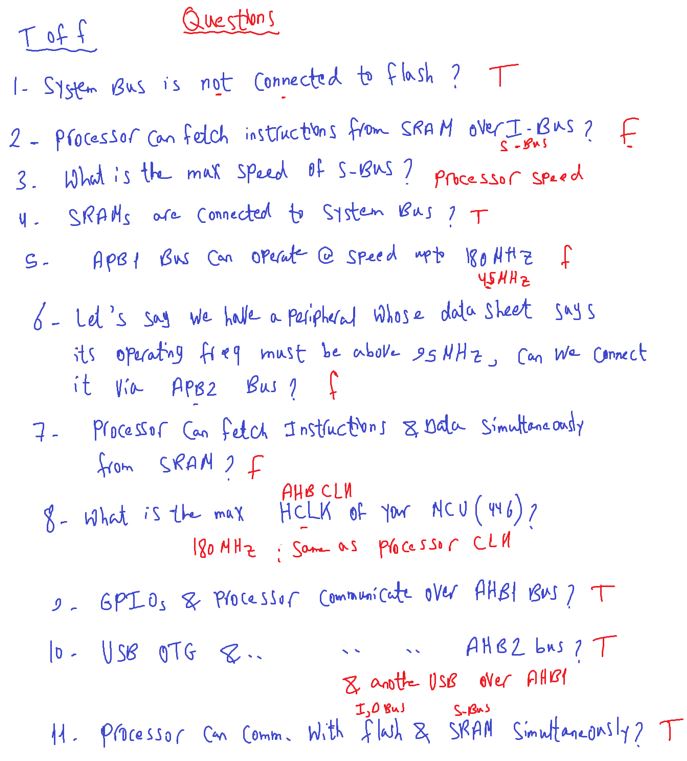 Questions
T of f
1- System Bus is not Connected to flash ? T
2 - Processor Can fetch instructions from SRAM over I-Bus ? F
S-Bus
3. What is the max speed of S-Bus ? Processor speed
4. SRAMs are Connected to System Bus ? T
5- APB1 Bus Can operate @ speed upto 180 MHz f
45MHz
6 - Let's say we have a peripheral whose data sheet says
its operating freq must be above 95 MHz, Can we Connect
it via APB2 Bus ? f
7- Processor Can fetch Instructions & Data Simultaneously
from SRAM ? f
AHB CLK
8- What is the max HCLK of your MCU (446) ?
180 MHz : Same as processor CLK
9- GPIOs & Processor Communicate over AHB1 Bus ? T
10- USB OTG & .. .. .. AHB2 bus ? T
& another USB over AHB1
I,D Bus S-Bus
11. Processor Can Comm. With flash & SRAM Simultaneously ? T